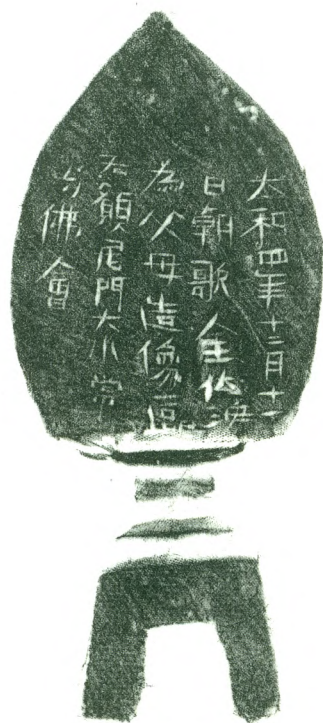 太和四年十二月十一
日朝歌
為父母造像區
願居門大小常
与佛會